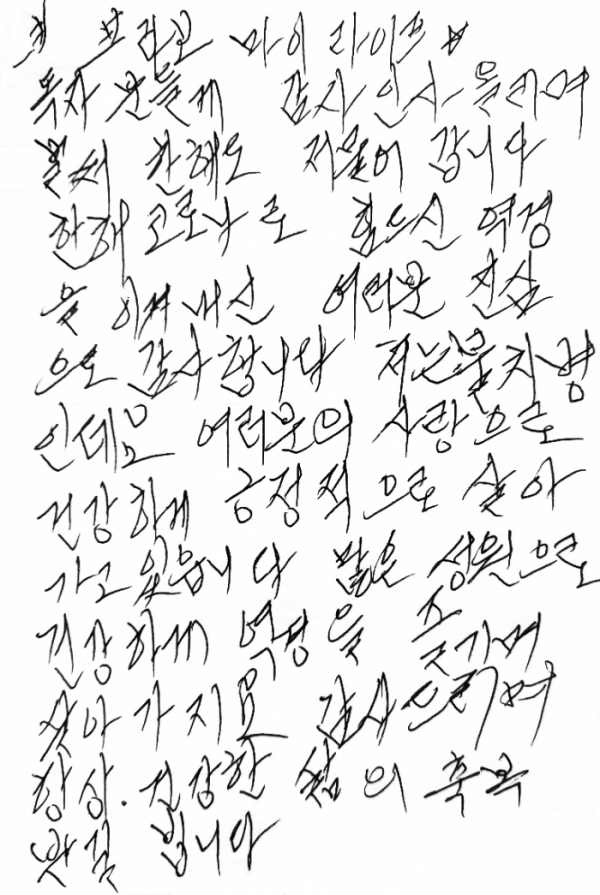 브라보 마이 라이프
독자 분들게 감사 인사 들리며
벌써 한해도 저물어 갑니다
한해 코로나로 힘드신 역경
을 이겨내신 여러분 진심
으로 감사합니다 저는불치병
인데요 여러분의 사랑으로
건강하게 긍정적으로 살아
가고 있읍니다 많은 성원으로
건강하게 역경을 즐기며
살아가지요 감사드리며
항상. 건강한 삶의 축복
빕니다